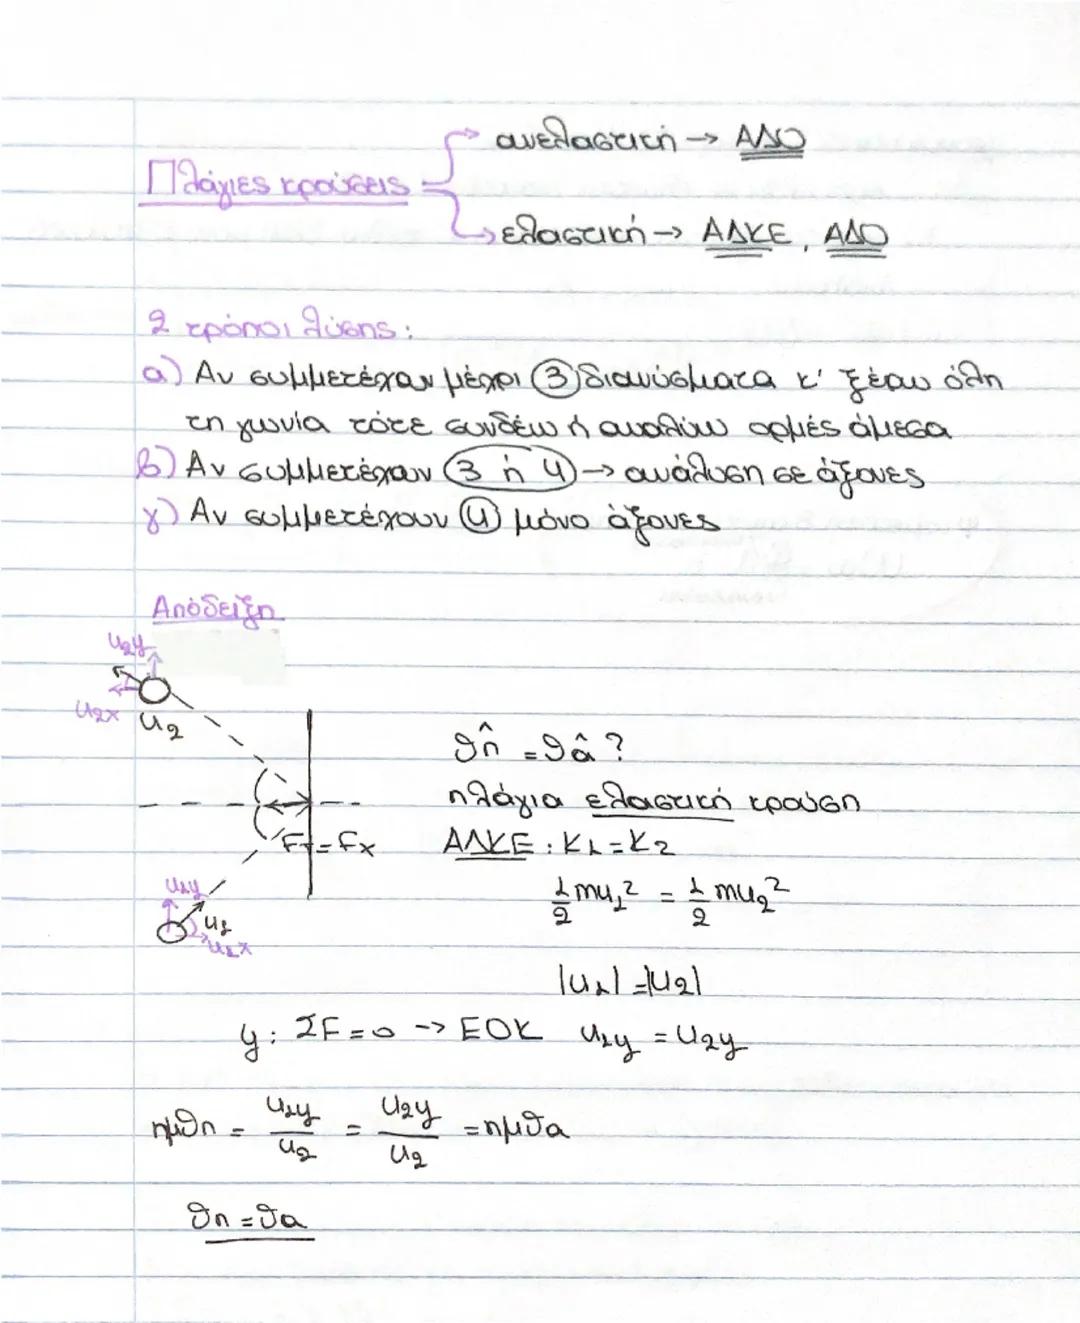 ανελαστική → ΑΔΟ
Πλάγιες κρούσεις
→ ελαστική → ΑΔΚΕ, ΑΔΟ
2 τρόποι λύσης:
α) Αν συμμετέχουν μέχρι 3 διανύσματα κ' ξέρω όλη
τη γωνία τότε συνδέω ή αναλύω ορμές άμεσα
β) Αν συμμετέχουν 3 ή 4 → ανάλυση σε άξονες
γ) Αν συμμετέχουν 4 μόνο άξονες
Απόδειξη
u2y
u2x u2
θπ̂ = θα̂ ?
πλάγια ελαστική κρούση
F = Fx
ΑΔΚΕ : K1 = K2
u1y
u1
u1x
1/2 mu1² = 1/2 mu2²
|u1| = |u2|
y: ΣF = 0 -> ΕΟΚ u1y = u2y
ημθπ = u1y/u2 = u2y/u2 = ημθα
θπ = θα